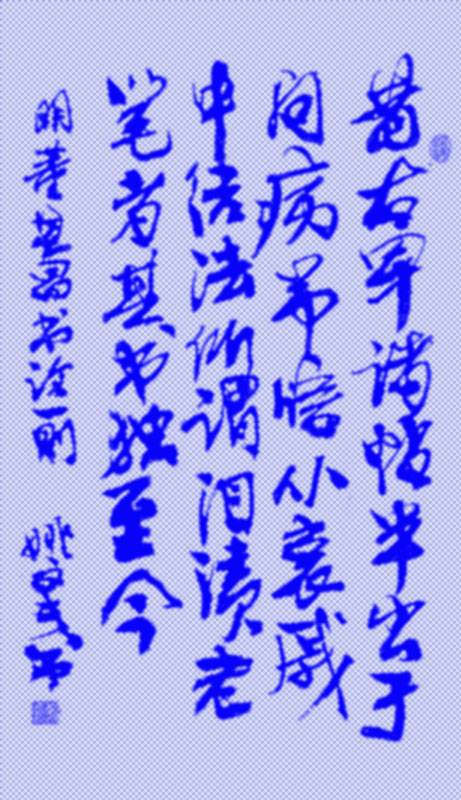 昔右军诸帖半出于
问病吊唁从哀戚
中结法所谓泪渍老
笔者其书独至今
明董其昌书论一则 姚